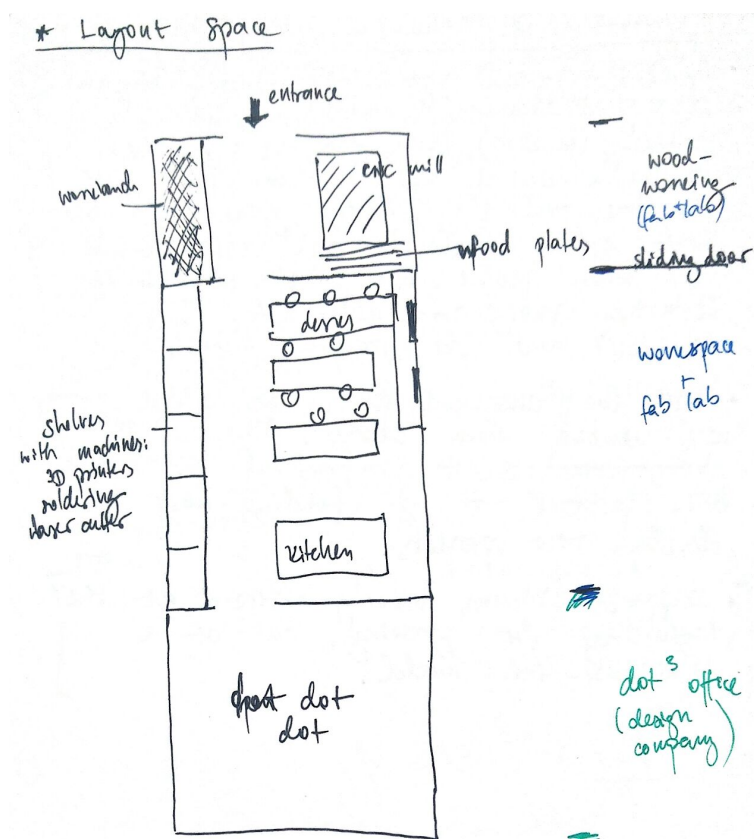 * Layout Space
entrance
workbench
cnc mill
wood plates
wood-
working
(fab lab)
sliding door
desks
workspace
+
fab lab
shelves
with machines:
3D printers
soldering
laser cutter
kitchen
dot dot
dot
dot³ office
(design
company)